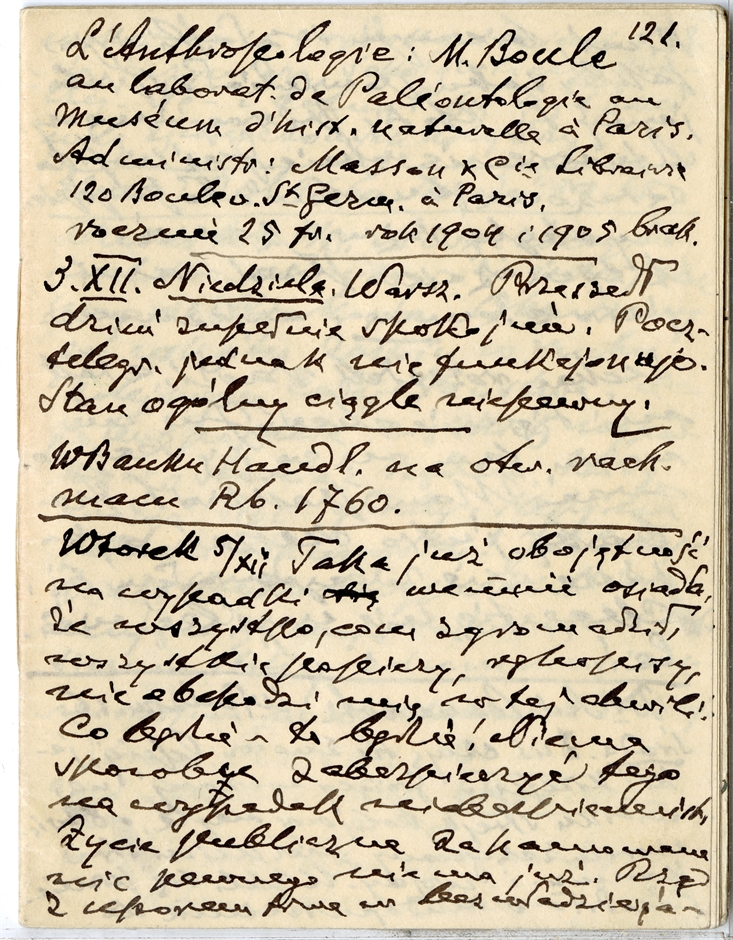 121.
L'Anthropologie: M. Boule
au laborat. de Paléontologie au
Muséum d'hist. naturelle à Paris.
Administr: Masson & Cie Libraire
120 Boulev. St Germ. à Paris.
rocznie 25 fr. rok 1904 i 1905 brak.
3.XII. Niedziela. Warsz. Przeszedł
dzień zupełnie spokojnie. Pocz-
telegr. jednak nie funkcjonuje.
Stan ogólny ciągle niepewny.
W Banku Handl. na otw. rach.
mam Rb. 1760.
Wtorek 5/XII Taka już obojętność
na wypadki się we mnie osiadła,
że wszystko, com zgromadził,
wszystkie papiery, rękopisy,
nie obchodzi mię w tej chwili.
Co będzie - to będzie! Niema
sposobu zabezpieczyć tego
na wypadek
Życie publiczne zahamowane
nic pewnego nie ma już. Rząd
z uporem trwa w